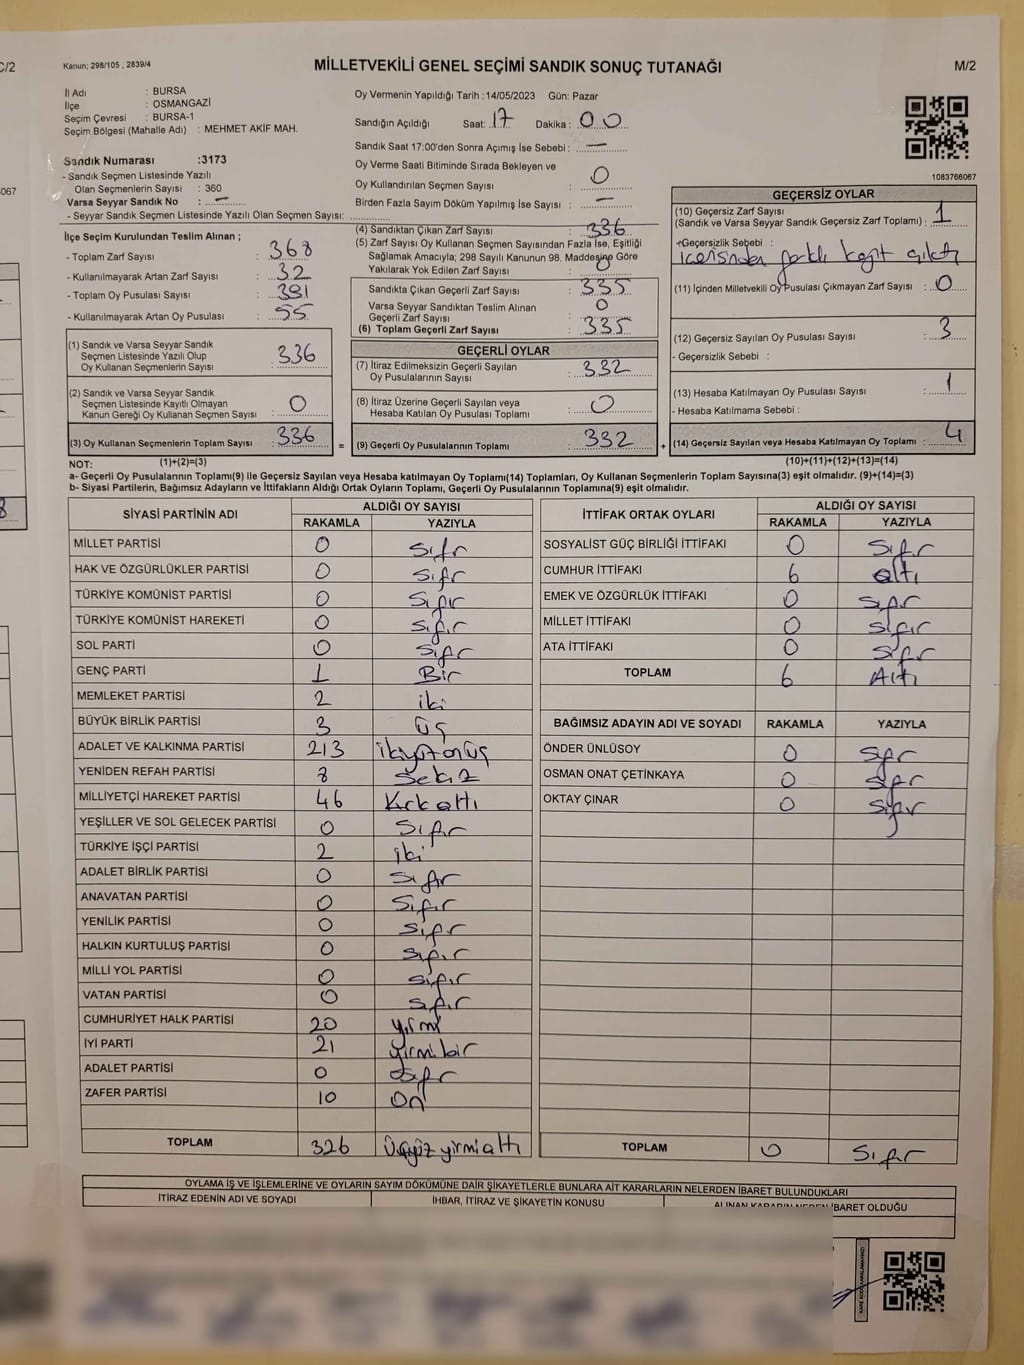 C/2
Kanun: 298/105 , 2839/4
MİLLETVEKİLİ GENEL SEÇİMİ SANDIK SONUÇ TUTANAĞI
M/2
İl Adı : BURSA
İlçe : OSMANGAZİ
Seçim Çevresi : BURSA-1
Seçim Bölgesi (Mahalle Adı) : MEHMET AKİF MAH.
Sandık Numarası :3173
- Sandık Seçmen Listesinde Yazılı
Olan Seçmenlerin Sayısı : 360
Varsa Seyyar Sandık No : —
- Seyyar Sandık Seçmen Listesinde Yazılı Olan Seçmen Sayısı:
Oy Vermenin Yapıldığı Tarih :14/05/2023 Gün: Pazar
Sandığın Açıldığı Saat: 17 Dakika : 00
Sandık Saat 17:00'den Sonra Açımış İse Sebebi : —
Oy Verme Saati Bitiminde Sırada Bekleyen ve
Oy Kullandırılan Seçmen Sayısı : 0
Birden Fazla Sayım Döküm Yapılmış İse Sayısı : —
1083766067
067
İlçe Seçim Kurulundan Teslim Alınan ;
- Toplam Zarf Sayısı : 368
- Kullanılmayarak Artan Zarf Sayısı : 32
- Toplam Oy Pusulası Sayısı : 391
- Kullanılmayarak Artan Oy Pusulası : 55
(1) Sandık ve Varsa Seyyar Sandık
Seçmen Listesinde Yazılı Olup
Oy Kullanan Seçmenlerin Sayısı : 336
(2) Sandık ve Varsa Seyyar Sandık
Seçmen Listesinde Kayıtlı Olmayan
Kanun Gereği Oy Kullanan Seçmen Sayısı : 0
(3) Oy Kullanan Seçmenlerin Toplam Sayısı : 336
(4) Sandıktan Çıkan Zarf Sayısı : 336
(5) Zarf Sayısı Oy Kullanan Seçmen Sayısından Fazla İse, Eşitliği
Sağlamak Amacıyla; 298 Sayılı Kanunun 98. Maddesine Göre
Yakılarak Yok Edilen Zarf Sayısı : 0
Sandıkta Çıkan Geçerli Zarf Sayısı : 335
Varsa Seyyar Sandıktan Teslim Alınan
Geçerli Zarf Sayısı : 0
(6) Toplam Geçerli Zarf Sayısı : 335
GEÇERLİ OYLAR
(7) İtiraz Edilmeksizin Geçerli Sayılan
Oy Pusulalarının Sayısı : 332
(8) İtiraz Üzerine Geçerli Sayılan veya
Hesaba Katılan Oy Pusulası Toplamı : 0
= (9) Geçerli Oy Pusulalarının Toplamı : 332 +
GEÇERSİZ OYLAR
(10) Geçersiz Zarf Sayısı
(Sandık ve Varsa Seyyar Sandık Geçersiz Zarf Toplamı) : 1
-Geçersizlik Sebebi :
içerisinden farklı kağıt çıktı
(11) İçinden Milletvekili Oy Pusulası Çıkmayan Zarf Sayısı : 0
(12) Geçersiz Sayılan Oy Pusulası Sayısı : 3
- Geçersizlik Sebebi :
(13) Hesaba Katılmayan Oy Pusulası Sayısı : 1
- Hesaba Katılmama Sebebi :
(14) Geçersiz Sayılan veya Hesaba Katılmayan Oy Toplamı : 4
NOT: (1)+(2)=(3) (10)+(11)+(12)+(13)=(14)
a- Geçerli Oy Pusulalarının Toplamı(9) ile Geçersiz Sayılan veya Hesaba katılmayan Oy Toplamı(14) Toplamları, Oy Kullanan Seçmenlerin Toplam Sayısına(3) eşit olmalıdır. (9)+(14)=(3)
b- Siyasi Partilerin, Bağımsız Adayların ve İttifakların Aldığı Ortak Oyların Toplamı, Geçerli Oy Pusulalarının Toplamına(9) eşit olmalıdır.
SİYASİ PARTİNİN ADI ALDIĞI OY SAYISI
RAKAMLA YAZIYLA
MİLLET PARTİSİ 0 Sıfır
HAK VE ÖZGÜRLÜKLER PARTİSİ 0 Sıfır
TÜRKİYE KOMÜNİST PARTİSİ 0 Sıfır
TÜRKİYE KOMÜNİST HAREKETİ 0 Sıfır
SOL PARTİ 0 Sıfır
GENÇ PARTİ 1 Bir
MEMLEKET PARTİSİ 2 iki
BÜYÜK BİRLİK PARTİSİ 3 üç
ADALET VE KALKINMA PARTİSİ 213 ikiyüzonüç
YENİDEN REFAH PARTİSİ 8 Sekiz
MİLLİYETÇİ HAREKET PARTİSİ 46 Kırkaltı
YEŞİLLER VE SOL GELECEK PARTİSİ 0 Sıfır
TÜRKİYE İŞÇİ PARTİSİ 2 iki
ADALET BİRLİK PARTİSİ 0 Sıfır
ANAVATAN PARTİSİ 0 Sıfır
YENİLİK PARTİSİ 0 Sıfır
HALKIN KURTULUŞ PARTİSİ 0 Sıfır
MİLLİ YOL PARTİSİ 0 Sıfır
VATAN PARTİSİ 0 Sıfır
CUMHURİYET HALK PARTİSİ 20 yirmi
İYİ PARTİ 21 yirmibir
ADALET PARTİSİ 0 Sıfır
ZAFER PARTİSİ 10 On
TOPLAM 326 Üçyüzyirmialtı
İTTİFAK ORTAK OYLARI ALDIĞI OY SAYISI
RAKAMLA YAZIYLA
SOSYALİST GÜÇ BİRLİĞİ İTTİFAKI 0 Sıfır
CUMHUR İTTİFAKI 6 altı
EMEK VE ÖZGÜRLÜK İTTİFAKI 0 Sıfır
MİLLET İTTİFAKI 0 Sıfır
ATA İTTİFAKI 0 Sıfır
TOPLAM 6 Altı
BAĞIMSIZ ADAYIN ADI VE SOYADI RAKAMLA YAZIYLA
ÖNDER ÜNLÜSOY 0 Sıfır
OSMAN ONAT ÇETİNKAYA 0 Sıfır
OKTAY ÇINAR 0 Sıfır
TOPLAM 0 Sıfır
OYLAMA İŞ VE İŞLEMLERİNE VE OYLARIN SAYIM DÖKÜMÜNE DAİR ŞİKAYETLERLE BUNLARA AİT KARARLARIN NELERDEN İBARET BULUNDUKLARI
İTİRAZ EDENİN ADI VE SOYADI İHBAR, İTİRAZ VE ŞİKAYETİN KONUSU ALINAN KARARIN NEDEN İBARET OLDUĞU